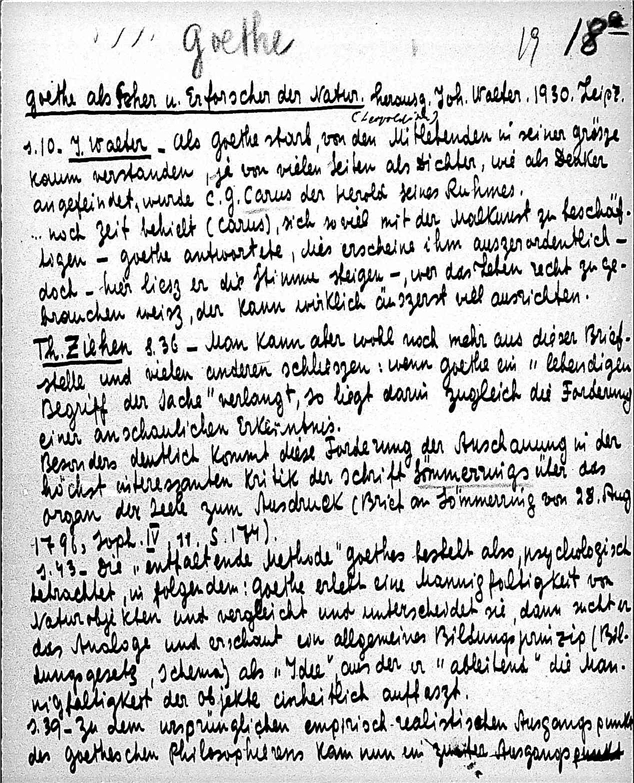 Goethe
19 18a
Goethe als Seher u. Erforscher der Natur. herausg. Joh. Walter. 1930. Leipz.
(Leopoldina)
S.10 - J. Walter - Als Goethe starb, von den Mitlebenden in seiner Grösze
kaum verstanden, ja von vielen Seiten als Dichter, wie als Denker
angefeindet, wurde C.G. Carus der Herold seines Ruhmes.
... noch Zeit behielt (Carus), sich soviel mit der Malkunst zu beschäf-
tigen - Goethe antwortete, dies erscheine ihm auszerordentlich -
doch - hier liesz er die Stimme steigen -, wer das Leben recht zu ge-
brauchen weisz, der kann wirklich äuszerst viel ausrichten.
Th. Ziehen S.36 - Man kann aber wohl noch mehr aus dieser Brief-
stelle und vielen anderen schlieszen: wenn Goethe ein "lebendigen
Begriff der Sache" verlangt, so liegt darin zugleich die Forderung
einer anschaulichen Erkenntnis.
Besonders deutlich kommt diese Forderung der Anschauung in der
höchst interessanten Kritik der Schrift Sömmerrings über das
Organ der Seele zum Ausdruck (Brief an Sömmerring von 28. Aug
1796, Soph. IV, 11, S. 174).
S.43 - Die "entfaltende Methode" Goethes besteht also, psychologisch
betrachtet, in folgendem: Goethe erlebt eine Mannigfaltigkeit von
Naturobjekten und vergleicht und unterscheidet sie, dann sucht er
das Analoge und erschaut ein allgemeines Bildungsprinzip (Bil-
dungsgesetz, Schema) als "Idee", aus der er "ableitend" die Man-
nigfaltigkeit der Objekte einheitlich auffaszt.
S.39 - Zu dem ursprünglichen empirisch-realistischen Ausgangspunkt
des Goetheschen Philosophierens kam nun ein zweiter Ausgangspunkt